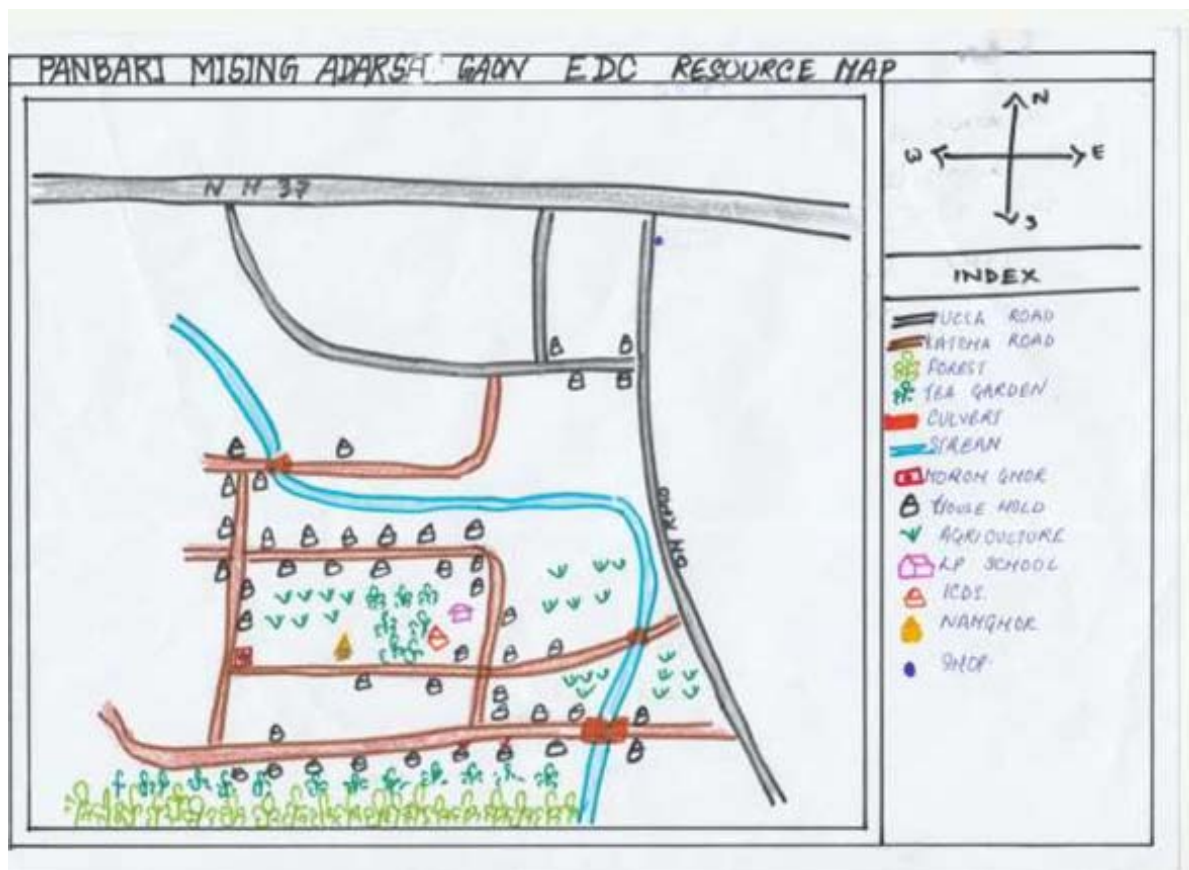 PANBARI MISING ADARSA GAON EDC RESOURCE MAP
N
W E
S
N H 37
INDEX
PUCCA ROAD
KATCHA ROAD
FOREST
TEA GARDEN
CULVERS
STREAN
MOROM GHOR
HOUSE HOLD
AGRICULTURE
LP SCHOOL
ICDS.
NAMGHOR
SHOP